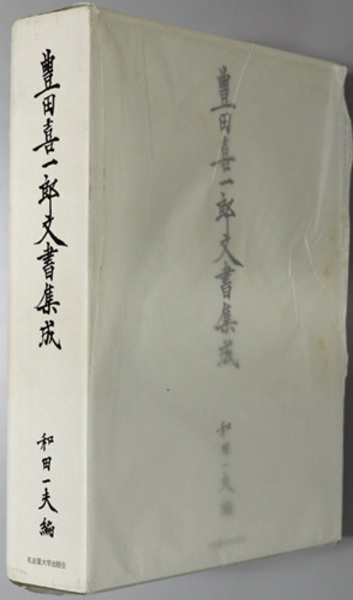 豊田喜一郎文書集成
和田一夫編
名古屋大学出版会
豊田喜一郎文書集成
和田一夫編